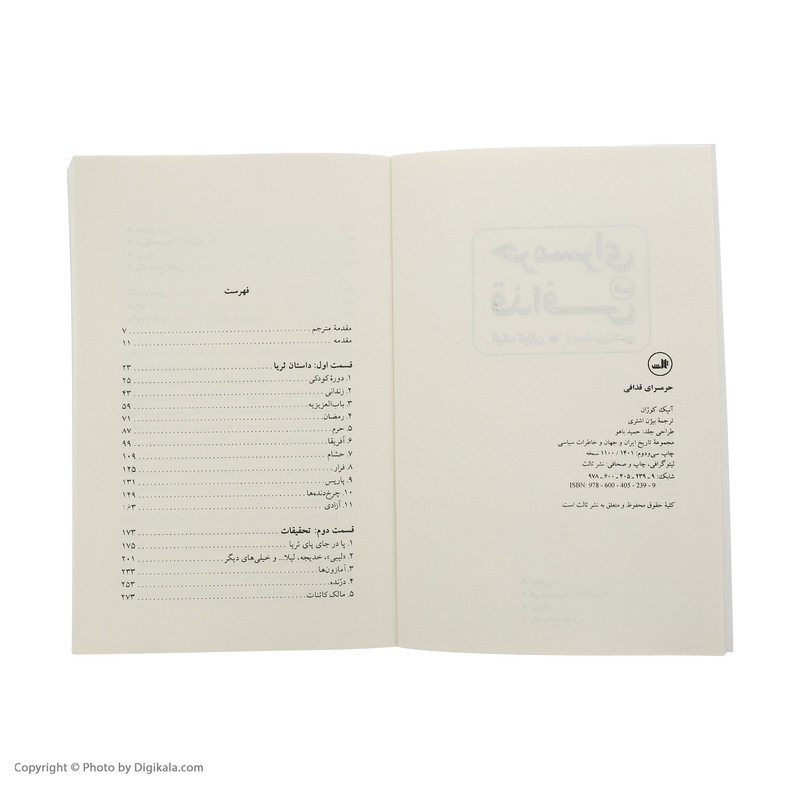 حرمسرای قذافی
آنیک کوژان
ترجمهٔ بیژن اشتری
طراحی جلد: حمید باهو
مجموعهٔ تاریخ ایران و جهان و خاطرات سیاسی
چاپ سی‌ودوم: ۱۴۰۱ / ۱۱۰۰ نسخه
لیتوگرافی، چاپ و صحافی: نشر ثالث
شابک: ۹ ـ ۲۳۹ ـ ۴۰۵ ـ ۶۰۰ ـ ۹۷۸
ISBN: 978 - 600 - 405 - 239 - 9
کلیهٔ حقوق محفوظ و متعلق به نشر ثالث است.
فهرست
مقدمهٔ مترجم ۷
مقدمه ۱۱
قسمت اول: داستان ثریا ۲۳
۱. دورهٔ کودکی ۲۵
۲. زندانی ۴۳
۳. باب‌العزیزیه ۵۹
۴. رمضان ۷۱
۵. حرم ۸۷
۶. آفریقا ۹۹
۷. حشام ۱۰۹
۸. فرار ۱۲۵
۹. پاریس ۱۳۱
۱۰. چرخ‌دنده‌ها ۱۴۹
۱۱. آزادی ۱۶۳
قسمت دوم: تحقیقات ۱۷۳
۱. پا در جای پای ثریا ۱۷۵
۲. «لیبی»، خدیجه، لیلا... و خیلی‌های دیگر ۲۰۱
۳. آمازون‌ها ۲۳۳
۴. درّنده ۲۵۳
۵. مالک کائنات ۲۷۳
Copyright © Photo by Digikala.com